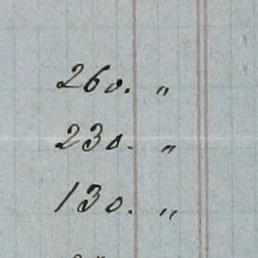 260. "
230. "
130. "